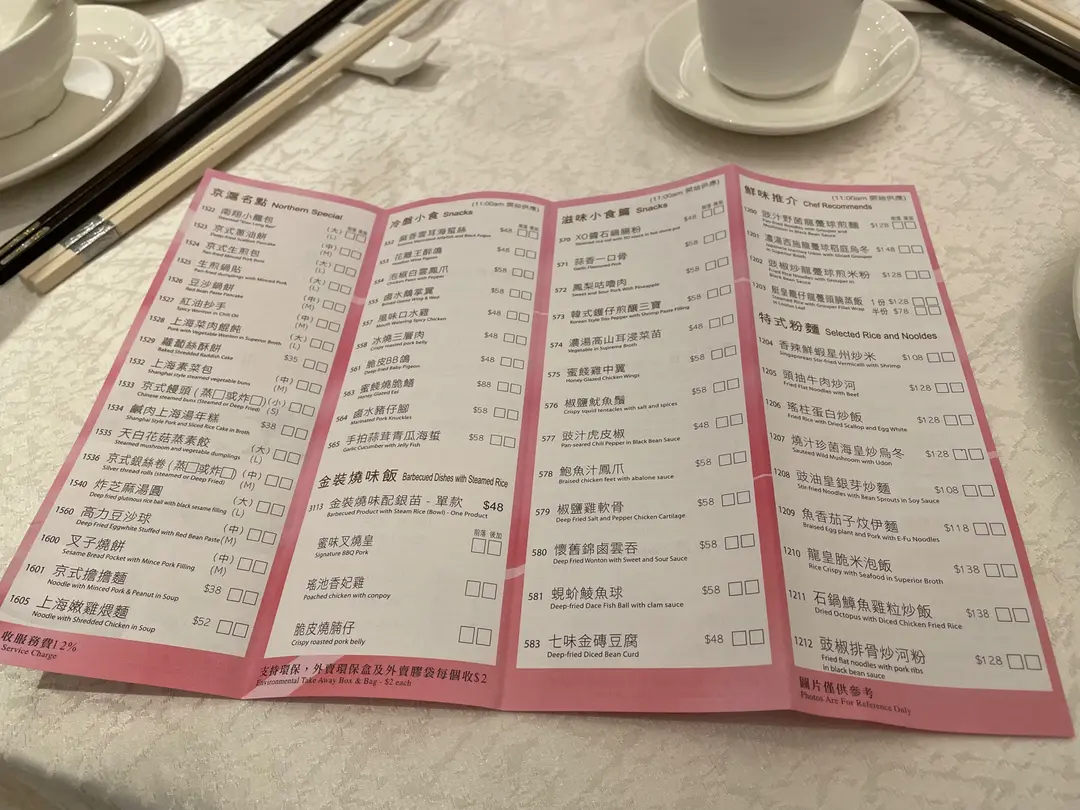 京滬名點 Northern Special
1522 南翔小籠包 (大)
Steamed "Xiao Long Bao" (L)
1523 京式蔥油餅 (中)
Deep-Fried Scallion Pancake (M)
1524 京式生煎包 (大)
Pan-fried Minced Pork Bun (L)
1525 生煎鍋貼 (大)
Pan-fried dumplings with Minced Pork (L)
1526 豆沙鍋餅 (中)
Red Bean Paste Pancake (M)
1527 紅油抄手 (中)
Spicy Wonton in Chili Oil (M)
1528 上海菜肉餛飩 (大)
Pork with Vegetable Wonton in Superior Broth (L)
1529 蘿蔔絲酥餅 $35
Baked Shredded Raddish Cake
1532 上海素菜包 (中)
Shanghai style steamed vegetable buns (M)
1533 京式饅頭 (蒸□或炸□) (小)
Chinese steamed buns (Steamed or Deep Fried) (S)
1534 鹹肉上海湯年糕 $38
Shanghai Style Pork and Sliced Rice Cake in Broth
1535 天白花菇蒸素餃 (大)
Steamed mushroom and vegetable dumplings (L)
1536 京式銀絲卷 (蒸□或炸□) (中)
Silver thread rolls (steamed or Deep Fried) (M)
1540 炸芝麻湯圓 (大)
Deep fried glutinous rice ball with black sesame filling (L)
1560 高力豆沙球 (中)
Deep Fried Eggwhite Stuffed with Red Bean Paste (M)
1600 叉子燒餅 (中)
Sesame Bread Pocket with Mince Pork Filling (M)
1601 京式擔擔麵 $38
Noodle with Minced Pork & Peanut in Soup
1605 上海嫩雞煨麵 $52
Noodle with Shredded Chicken in Soup
收服務費12%
Service Charge
(11:00am 開始供應)
冷盤小食 Snacks
552 麻香雲耳海蜇絲 $48
553 花雕王醉鴿 $48
554 泡椒白雲鳳爪 $58
555 鹵水鵝掌翼 $58
557 風味口水雞 $48
Mouth Watering Spicy Chicken
558 冰燒三層肉 $48
Crispy roasted pork belly
561 脆皮BB鴿 $48
Deep-fried Baby Pigeon
563 蜜餞燒脆鱔 $88
Honey Glazed Eel
564 鹵水豬仔腳 $58
Marinated Pork Knuckles
565 手拍蒜茸青瓜海蜇 $58
Garlic Cucumber with Jelly Fish
金裝燒味飯 Barbecued Dishes with Steamed Rice
3113 金裝燒味配銀苗 - 單款 $48
Barbecued Product with Steam Rice (Bowl) - One Product
蜜味叉燒皇 前落 後加
Signature BBQ Pork
瑤池香妃雞
Poached chicken with conpoy
脆皮燒腩仔
Crispy roasted pork belly
支持環保，外賣環保盒及外賣膠袋每個收$2
Environmental Take Away Box & Bag - $2 each
(11:00am 開始供應)
滋味小食篇 Snacks
570 XO醬石鍋腸粉 $48
571 蒜香一口骨 $58
Garlic Flavoured Pork
572 鳳梨咕嚕肉 $58
Sweet and Sour Pork with Pineapple
573 韓式鑊仔煎釀三寶 $58
Korean Style Trio Pepper with Shrimp Paste Filling
574 濃湯高山耳浸菜苗 $48
Vegetable in Supreme Broth
575 蜜餞雞中翼 $58
Honey Glazed Chicken Wings
576 椒鹽魷魚鬚 $58
Crispy squid tentacles with salt and spices
577 豉汁虎皮椒 $48
Pan-seared Chili Pepper in Black Bean Sauce
578 鮑魚汁鳳爪 $58
Braised chicken feet with abalone sauce
579 椒鹽雞軟骨 $58
Deep Fried Salt and Pepper Chicken Cartilage
580 懷舊錦鹵雲吞 $58
Deep Fried Wonton with Sweet and Sour Sauce
581 蜆蚧鯪魚球 $58
Deep-fried Dace Fish Ball with clam sauce
583 七味金磚豆腐 $48
Deep-fried Diced Bean Curd
(11:00am 開始供應)
鮮味推介 Chef Recommends
1200 豉汁野菌龍躉球煎麵 $128
Pan-fried Noodles with Grouper and
Mushroom in Black Bean Sauce
1201 濃湯西施腩躉球稻庭烏冬 $148
1202 豉椒炒龍躉球煎米粉 $128
Fried Rice Noodles with Grouper in
Black Bean Sauce
1203 艇皇薑仔龍躉頭腩蒸飯 1份 $128
半份 $78
特式粉麵 Selected Rice and Nooldes
1204 香辣鮮蝦星州炒米 $108
Singaporean Stir-fried Vermicelli with Shrimp
1205 頭抽牛肉炒河 $128
Fried Flat Noodles with Beef
1206 瑤柱蛋白炒飯 $128
Fried Rice with Dried Scallop and Egg White
1207 燒汁珍菌海皇炒烏冬 $128
Sautéed Wild Mushroom with Udon
1208 豉油皇銀芽炒麵 $108
Stir-fried Noodles with Bean Sprouts in Soy Sauce
1209 魚香茄子炆伊麵 $118
Braised Egg plant and Pork with E-Fu Noodles
1210 龍皇脆米泡飯 $138
Rice Crispy with Seafood in Superior Broth
1211 石鍋鱆魚雞粒炒飯 $138
Dried Octopus with Diced Chicken Fried Rice
1212 豉椒排骨炒河粉 $128
Fried flat noodles with pork ribs
in black bean sauce
圖片僅供參考
Photos Are For Reference Only